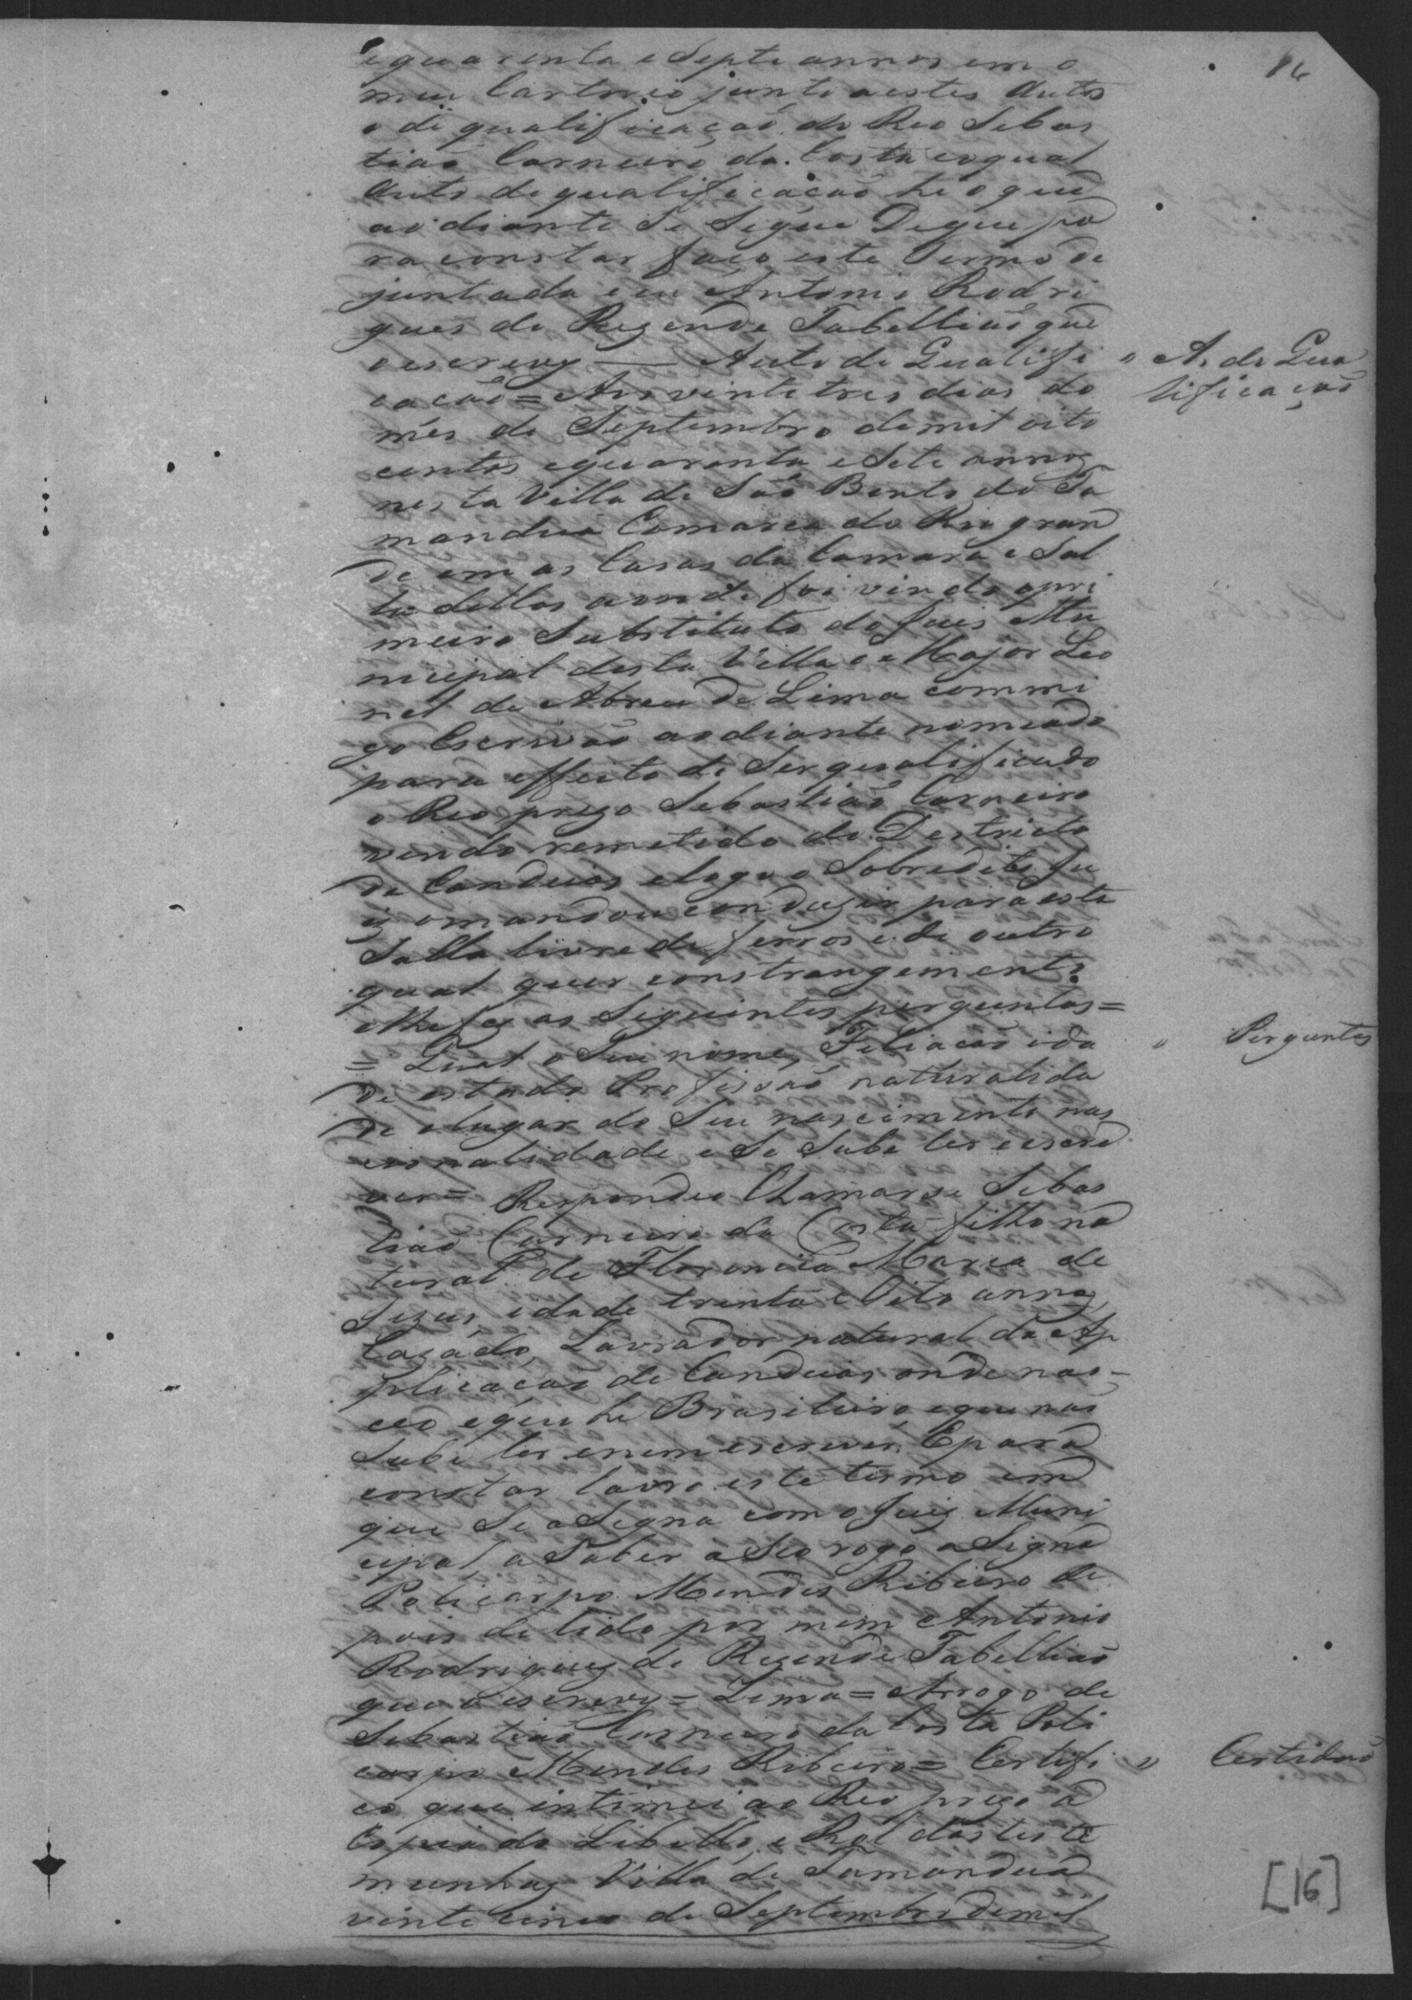 16
e quarenta e Septe annos em o
meu Cartorio junto a estes Autos
o de qualificação do Reo Sebas
tião Carneiro da Costa o qual
Auto de qualificação he o que
ao diante se Segue De que pa
ra constar faço este Termo de
juntada eu Antonio Rodri
gues de Rezende Tabellião que
o escrevy — Auto de Qualifi
" A. de Qua
lificação
cação = Aos vinte tres dias do
mes de Septembro de mil oito
centos e quarenta e Sete annos
nesta Villa de São Bento do Ta
mandua Comarca do Rio gran
de em as Casas da Camara e Sal
la dellas aonde foi vindo o pri
meiro Substituto do Juis Mu
nicipal desta Villa o Major Leo
nel de Abreu de Lima commi
go Escrivão ao diante nomeado
para effeito de Ser qualificado
o Reo prezo Sebastião Carneiro
vindo remetido do Destricto
de Candeias e logo o Sobredito Ju
iz o mandou conduzir para esta
Salla livre de ferros e de outro
qual quer constrangimento
e lhe fez as Seguintes perguntas =
= Qual o Seu nome, Filiação ida
" Perguntas
de estado Profissão naturalida
de e lugar do Seu nascimento nas
cionalidade e Se Sabe ler e escre
ver = Respondeo Chamarse Sebas
tião Carneiro da Costa filho na
tural de Florencia Maria de
Jezus, idade trinta e Oito annos,
Cazado, Lavrador natural da Ap
plicação de Candeias onde nas-
ceo e que he Brasileiro e que não
Sabe ler e nem escrever. E para
constar lavro este termo em
que Se aSigna com o Juiz Muni
cipal, a Saber a Seo rogo aSigna
Policarpo Mendes Ribeiro de
pois de lido por mim Antonio
Rodrigues de Rezende Tabellião
que o escrevy = Lima = Arrogo de
Sebastião Carneiro da Costa Poli
carpo Mendes Ribeiro = Certifi
" Certidão
co que intimei ao Reo prezo a
Copia do Libello, e Rol das teste
munhas Villa de Tamandua
vinte cinco de Septembro de mil
[16]